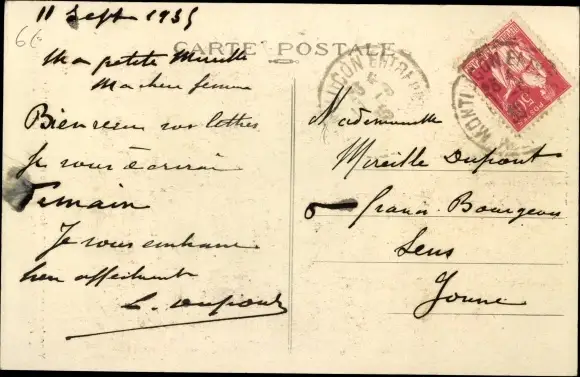 11 Sept 1935
66
CARTE POSTALE
Ma petite Mireille
Ma chère femme
Bien reçu vos lettres
Je vous écrirai
Demain
Je vous embrasse
bien affectueusement
L. Dupont
Mademoiselle
Mireille Dupont
6 Francs-Bourgeois
Sens
Yonne
50c
POSTES